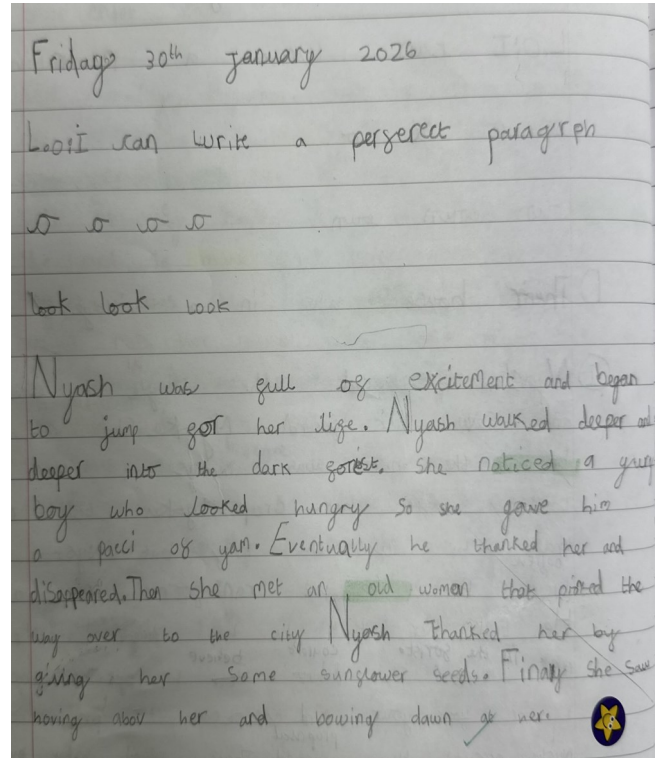 Friday 30th January 2026
Lo: I can write a perferect paragrph
look look look
Nyash was full of excitement and began
to jump for her life. Nyash walked deeper and
deeper into the dark forest. She noticed a
boy who looked hungry so she gave him
a pacci of yam. Eventually he thanked her and
disappeared. Then she met an old woman that the
way over to the city Nyash thanked her by
giving her some sunflower seeds. Finaly she saw
hoving abov her and bowing dawn at her.